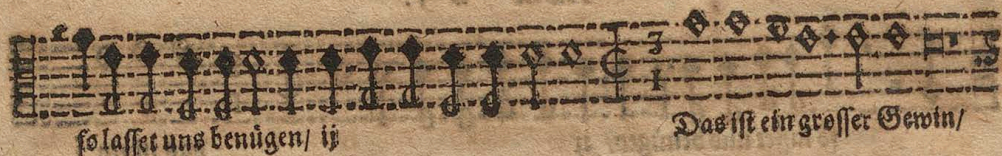 so lasset uns benügen/ ij Das ist ein grosser Gewin/